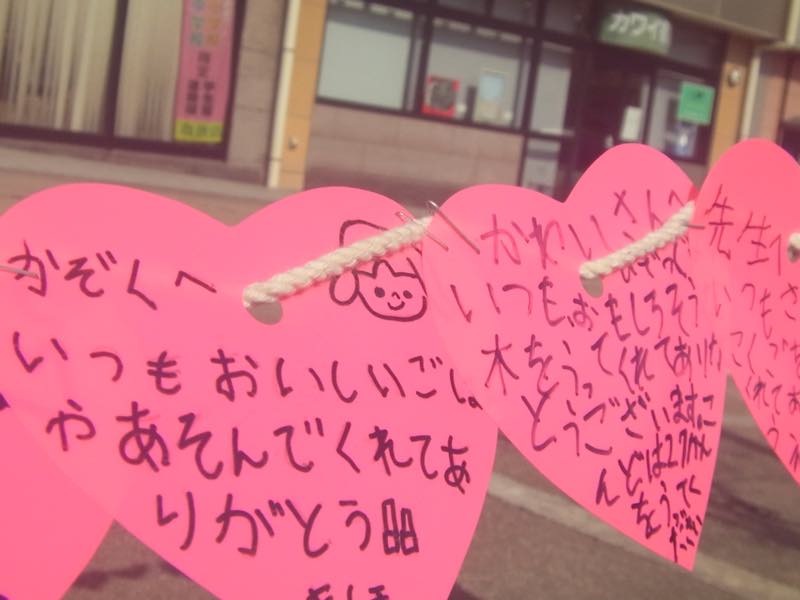 カワイ
かぞくへ
いつもおいしいごし
やあそんでくれてあ
りがとう!!
かわいさんへ
いつも、おもしろそう
木をうってくれてありが
とうございます。こ
んどは27かん
をうってく
ださい
先生へ
いつもさ
くれてあ